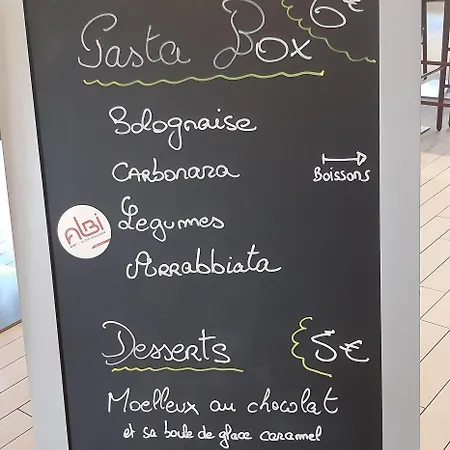 6€
Pasta Box
Bolognaise
Carbonara
Boissons
Légumes
ALBI
Arrabbiata
Desserts
5€
Moelleux au chocolat
et sa boule de glace caramel